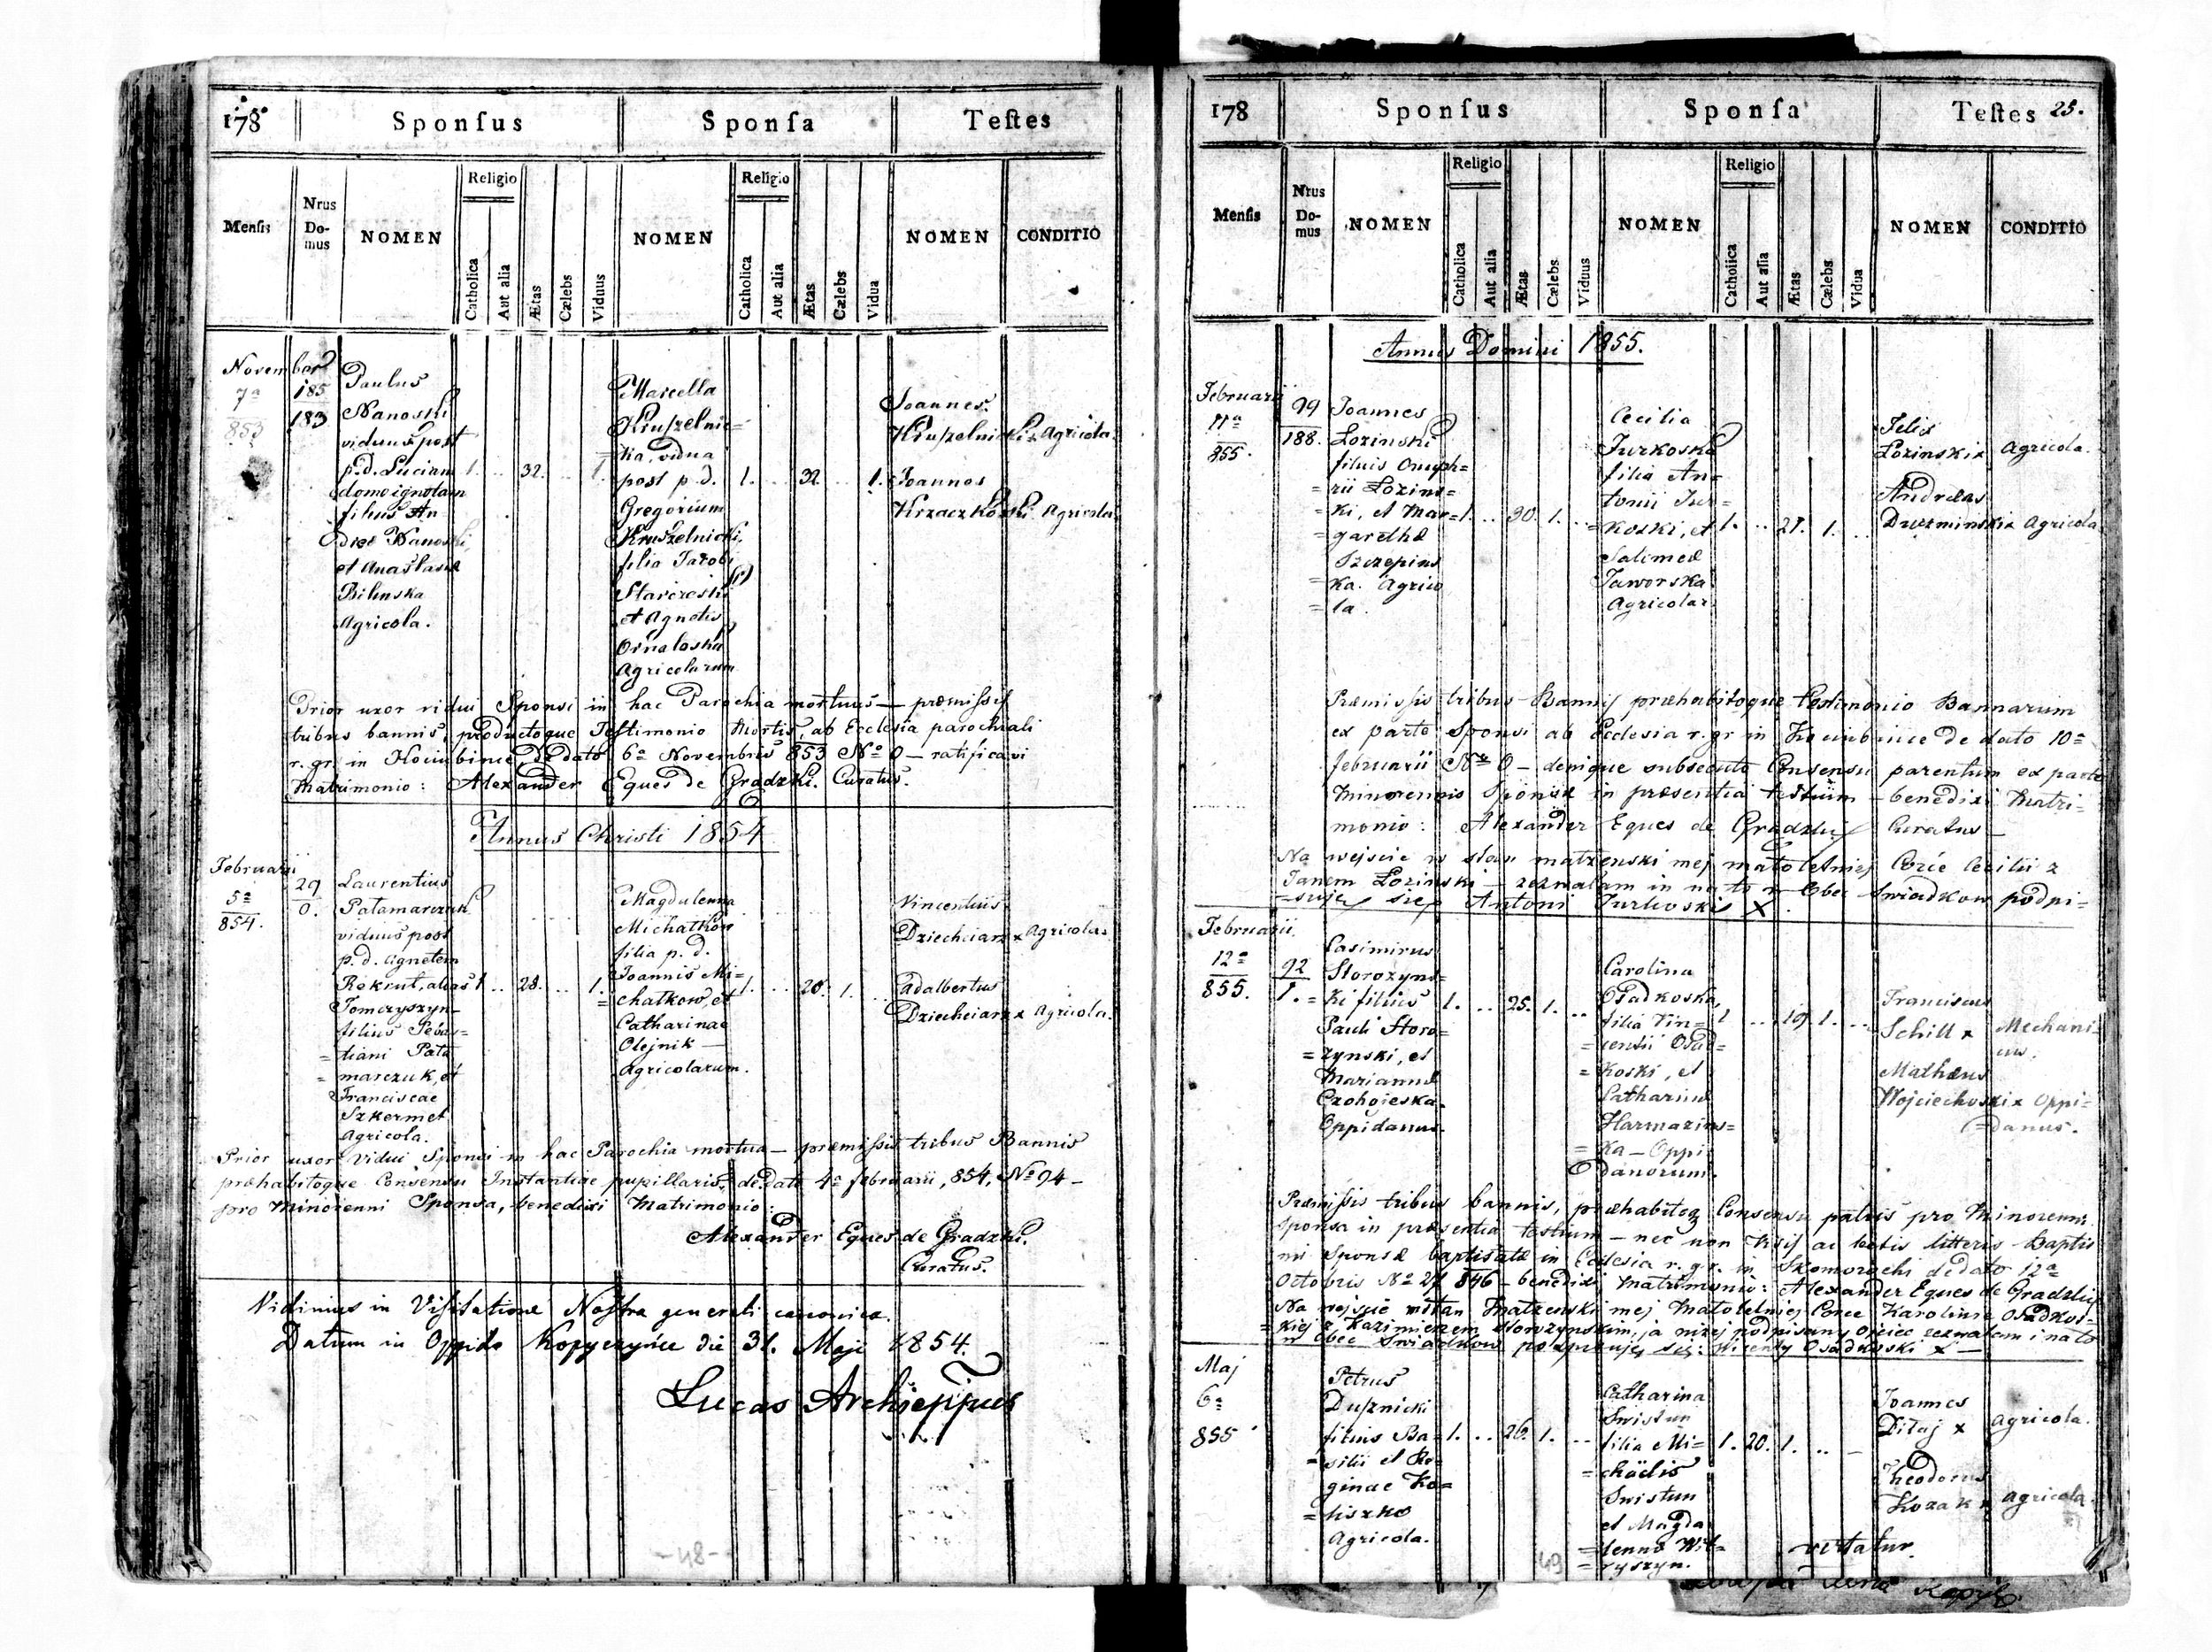 178 Sponſus Sponſa Teſtes
Menſis Nrus Domus NOMEN Religio Catholica Aut alia Ætas Cælebs Viduus NOMEN Religio Catholica Aut alia Ætas Cælebs Vidua NOMEN CONDITIO
November
7a
853
185
183
Paulus
Nanoski
viduus post
p.d. Luciam
domo ignotam
filius An
dreæ Nanoski,
et Anastasiæ
Bilinska
Agricola.
1. .. 32. .. 1.
Marcella
Kruszelnic=
ka, vidua
post p.d.
Gregorium
Kruszelnicki,
filia Jacobi
et Agnetis
Agricolarum
1. .. 32. .. 1.
Joannes
Kruszelnicki x Agricola.
Joannes
Krzaczkoski Agricola
Prior uxor vidui Sponsi in hac Parochia mortuus — præmissis
tribus bannis, productoque Testimonio Mortis, ab Ecclesia parochiali
r. gr. in Hociubince de dato 6a Novembris 853 No 0 — ratificavi
Matrimonio: Alexander Eques de Gradzki. Curatus.
Annus Christi 1854
Februarii
5a
854.
29
0.
Laurentius
Patamarczuk
viduus post
p.d. Agnetem
Rekrut, alias
Tomczyszyn
filius Sebas=
=tiani Pata
=marczuk, et
Franciscae
Szkermet
Agricola.
1 .. 28. .. 1.
Magdalenna
Michatkow
filia p.d.
Joannis Mi=
=chatkow, et
Catharinae
Olejnik —
Agricolarum.
1. .. 20. 1. ..
Vincentius
Dziechciarz x Agricola.
Adalbertus
Dziechciarz x Agricola.
Prior uxor Vidui Sponsi in hac Parochia mortua — præmissis tribus Bannis
præhabitoque Consensu Instantiae pupillaris, de dato 4a februarii, 854, No 94 —
pro Minorenni Sponsa, benedixi Matrimonio:
Alexander Eques de Gradzki.
Curatus.
Vidimus in Visitatione Nostra generali canonica.
Datum in Oppido Kopyczyńce die 31. Maji 1854.
Lucas Archieppus
-48-
178 Sponſus Sponſa Teſtes 25.
Menſis Nrus Domus NOMEN Religio Catholica Aut alia Ætas Cælebs Viduus NOMEN Religio Catholica Aut alia Ætas Cælebs Vidua NOMEN CONDITIO
Annus Domini 1855.
Februarii
11a
855.
99
188.
Joannes
Lozinski
filius Onuph=
=rii Lozins=
=ki, et Mar=
=garethæ
Szczepins
=ka. Agrico
=la.
1. .. 30. 1. ..
Cecilia
Jurkoska
filia An=
tonii Jur=
=koski, et
Salomeæ
Jaworska
Agricolar.
1. .. 21. 1. ..
Felix
Lozinski x Agricola.
Andreas
Duczminski x Agricola
Præmissis tribus Bannis præhabitoque testimonio Bannarum
ex parte Sponsi ab Ecclesia r. gr in Hociubince de dato 10a
februarii No 0 — denique subsecuto Consensu parentum ex parte
Minorennis Sponsæ in præsentia testium — benedixi Matri=
monio: Alexander Eques de Gradzki Curatus —
Na wejscie w stan matzenski mej matoletniej Corce Cecilii z
Janem Lozinski — zezwalam i na to w obec Swiadkow podpi=
=suję się Antoni Jurkoski X.
Februarii
12a
855.
92
1.
Casimirus
Storozyns=
=ki filius
Pauli Storo=
=zynski, et
Mariannæ
Czohoieska.
Oppidanus.
1. .. 25. 1. ..
Carolina
Osadkoska,
filia Vin=
=centii Osad=
=koski, et
Catharinæ
Harmazins=
=ka — Oppi
danorum.
1 .. 19. 1. ..
Franciscus
Schill x Mechani
cus.
Mathæus
Wojciechoski x Oppi=
=danus.
Præmissis tribus bannis, præhabitoq Consensu patris pro Minorenni
Sponsa in præsentia testium — nec non visis ac lectis litteris Baptis
mi Sponsæ baptisatæ in Ecclesia r. gr. in Skomorochi de dato 12a
Octobris No 27 846 — benedixi Matrimonio: Alexander Eques de Gradzki
Na wejscie w stan Matzenski mej Matoletniej Corce Karolinie Osadkos=
=kiej z Kazimierzem Storozynskim, ja nizej podpisany Ojciec zezwalam i na to
w obec Swiadkow podpisuję się: Wicenty Osadkoski x —
Maj
6a
855
Petrus
Dusznicki
filius Ba=
=silii et Re=
ginae Ko=
=liszko
Agricola.
1. .. 26. 1. ..
Catharina
Swistun
filia Mi=
=chäelis
Swistun
et Magda
=lennæ Wit=
=ryszyn.
1. 20. 1. .. —
Joannes
Ditaj x Agricola.
Theodorus
Kozak x Agricola
vertatur.
49